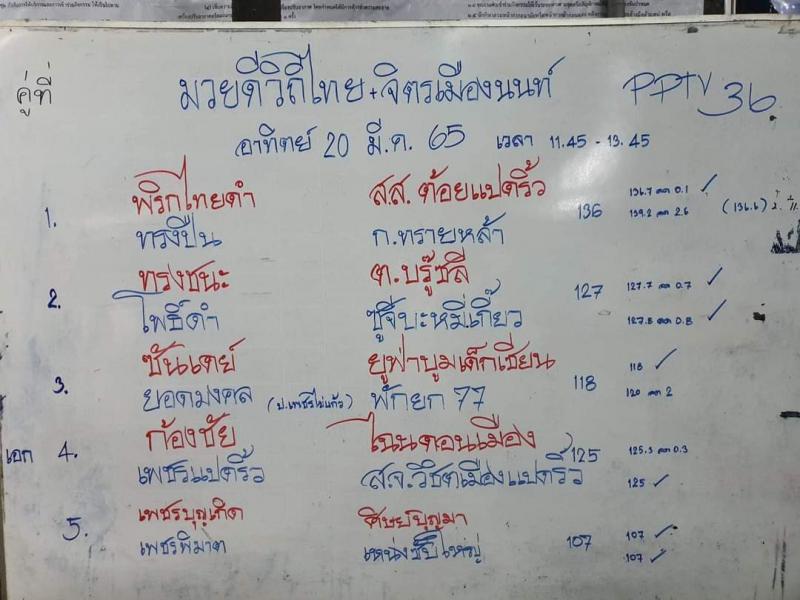 คู่ที่ มวยดีวิถีไทย+จิตรเมืองนนท์ PPTV 36
อาทิตย์ 20 มี.ค. 65 เวลา 11.45 - 13.45
1. พริกไทยดำ ส.ส. ต้อยแปดริ้ว 136 136.7 ลด 0.1 ✓
ทรงปืน ก.ทรายหล้า 139.2 ลด 2.6 (136.6)
2. ทรงชนะ ต.บรู๊ซลี 127 127.7 ลด 0.7 ✓
โพธิ์ดำ ซูจีบะหมี่เกี๊ยว 127.8 ลด 0.8 ✓
3. ซันเดย์ ยูฟ่าบูมเด็กเซียน 118 118 ✓
ยอดมงคล (ป.เพชรไข่แก้ว) พักยก 77 120 ลด 2
เอก 4. ก้องชัย ไฉนดอนเมือง 125 125.3 ลด 0.3
เพชรแปดริ้ว ส.จ.วิชิตเมืองแปดริ้ว 125 ✓
5. เพชรบุญเกิด ศิษย์บุญมา 107 107 ✓
เพชรพิมาต เหน่งซับใหญ่ 107 ✓